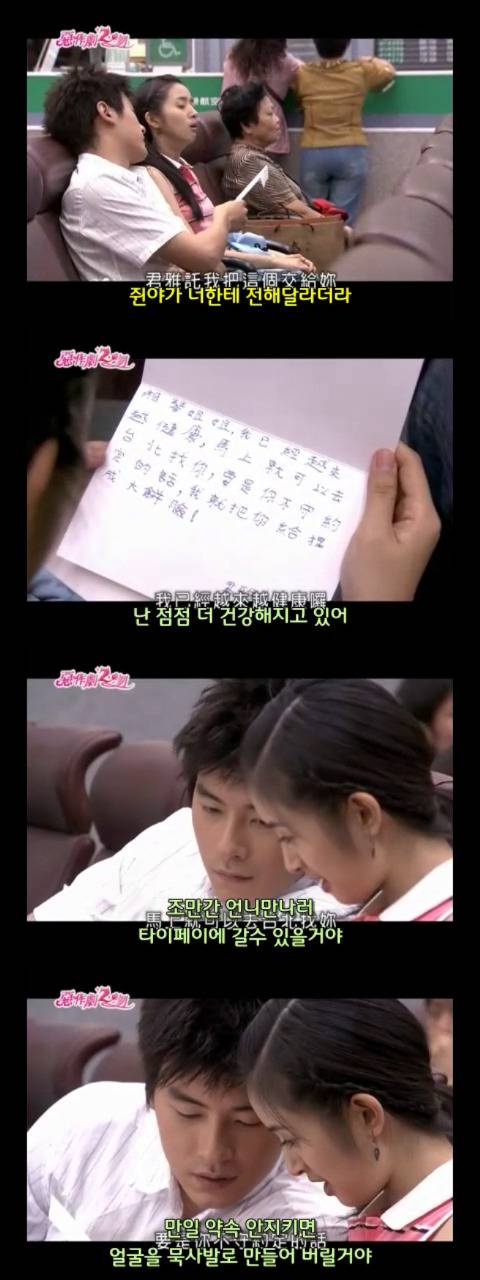 惡作劇2吻
航空
君雅託我把這個交給妳
쥔야가 너한테 전해달라더라
惡作劇2吻
湘琴姐姐,我已經越來
越健康,馬上就可以去
台北找你,要是你不守約
定的話,我就把你給捏
成大餅臉!
我已經越來越健康囉
난 점점 더 건강해지고 있어
惡作劇2吻
조만간 언니만나러
馬上就可以去台北找妳
타이페이에 갈수 있을거야
惡作劇2吻
만일 약속 안지키면
要是你不守約定的話
얼굴을 묵사발로 만들어 버릴거야